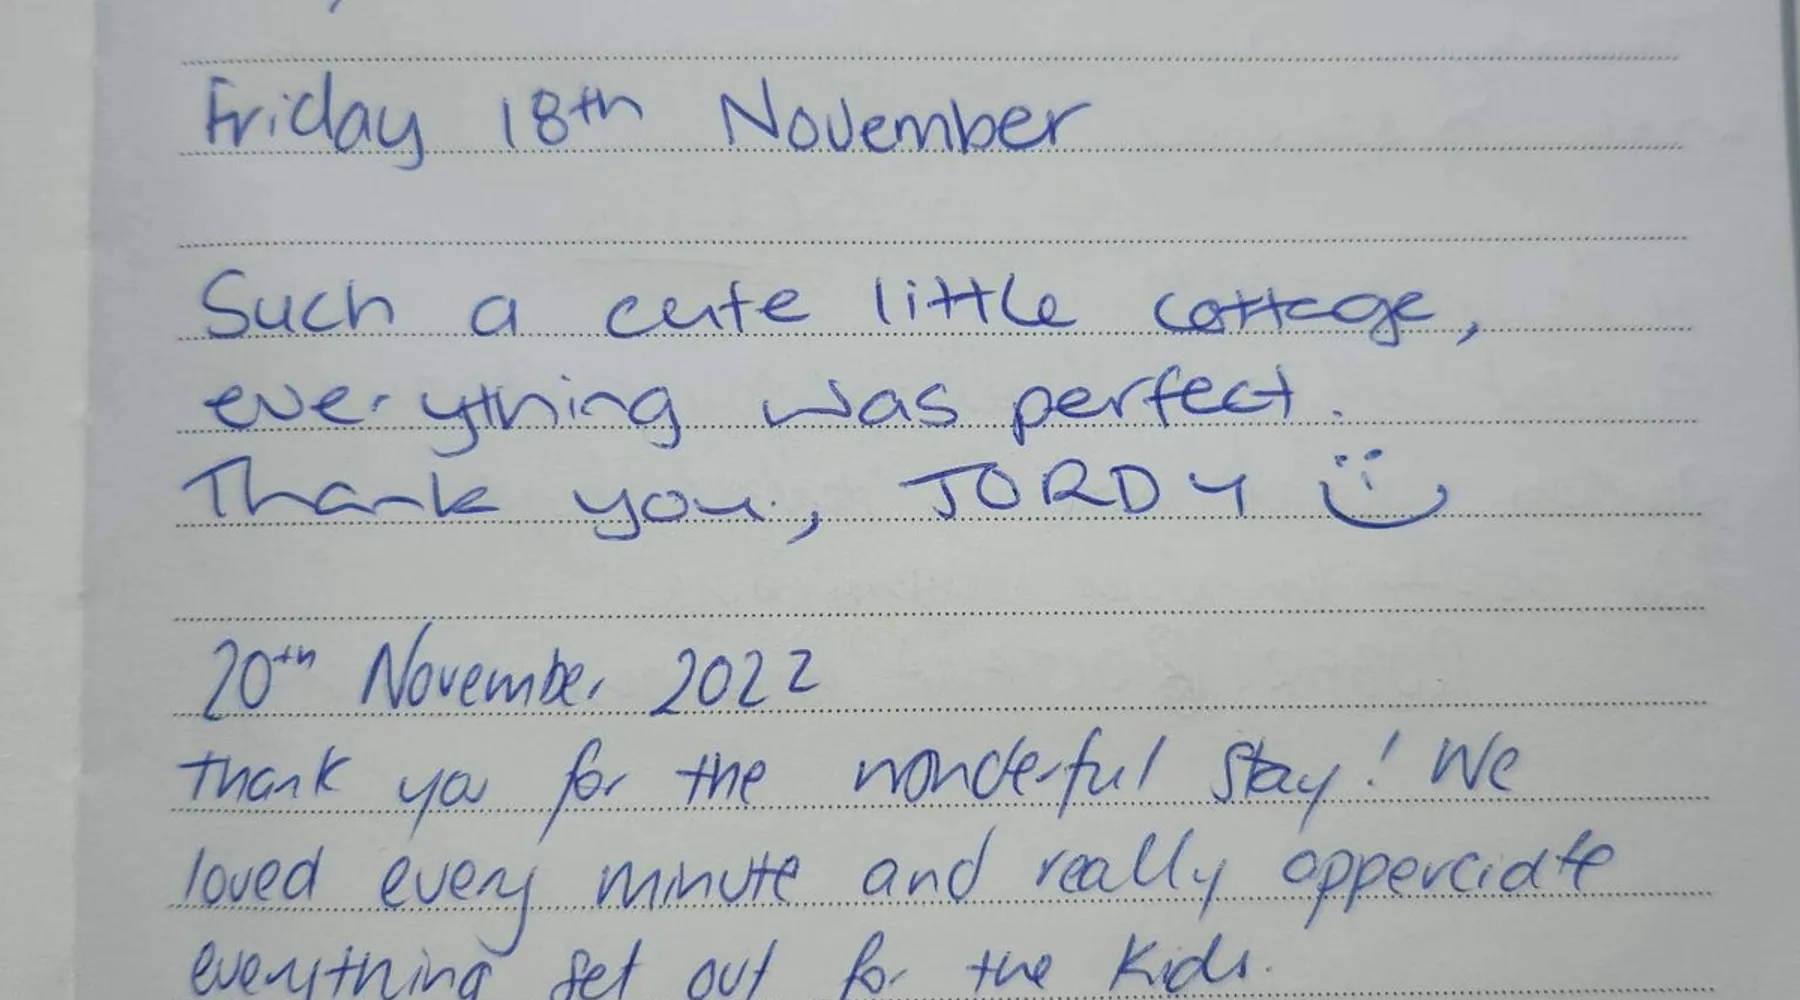 Friday 18th November
Such a cute little cottage,
everything was perfect.
Thank you, JORDY
20th November 2022
thank you for the wonderful stay! We
loved every minute and really apperciate
everything set out for the kids.